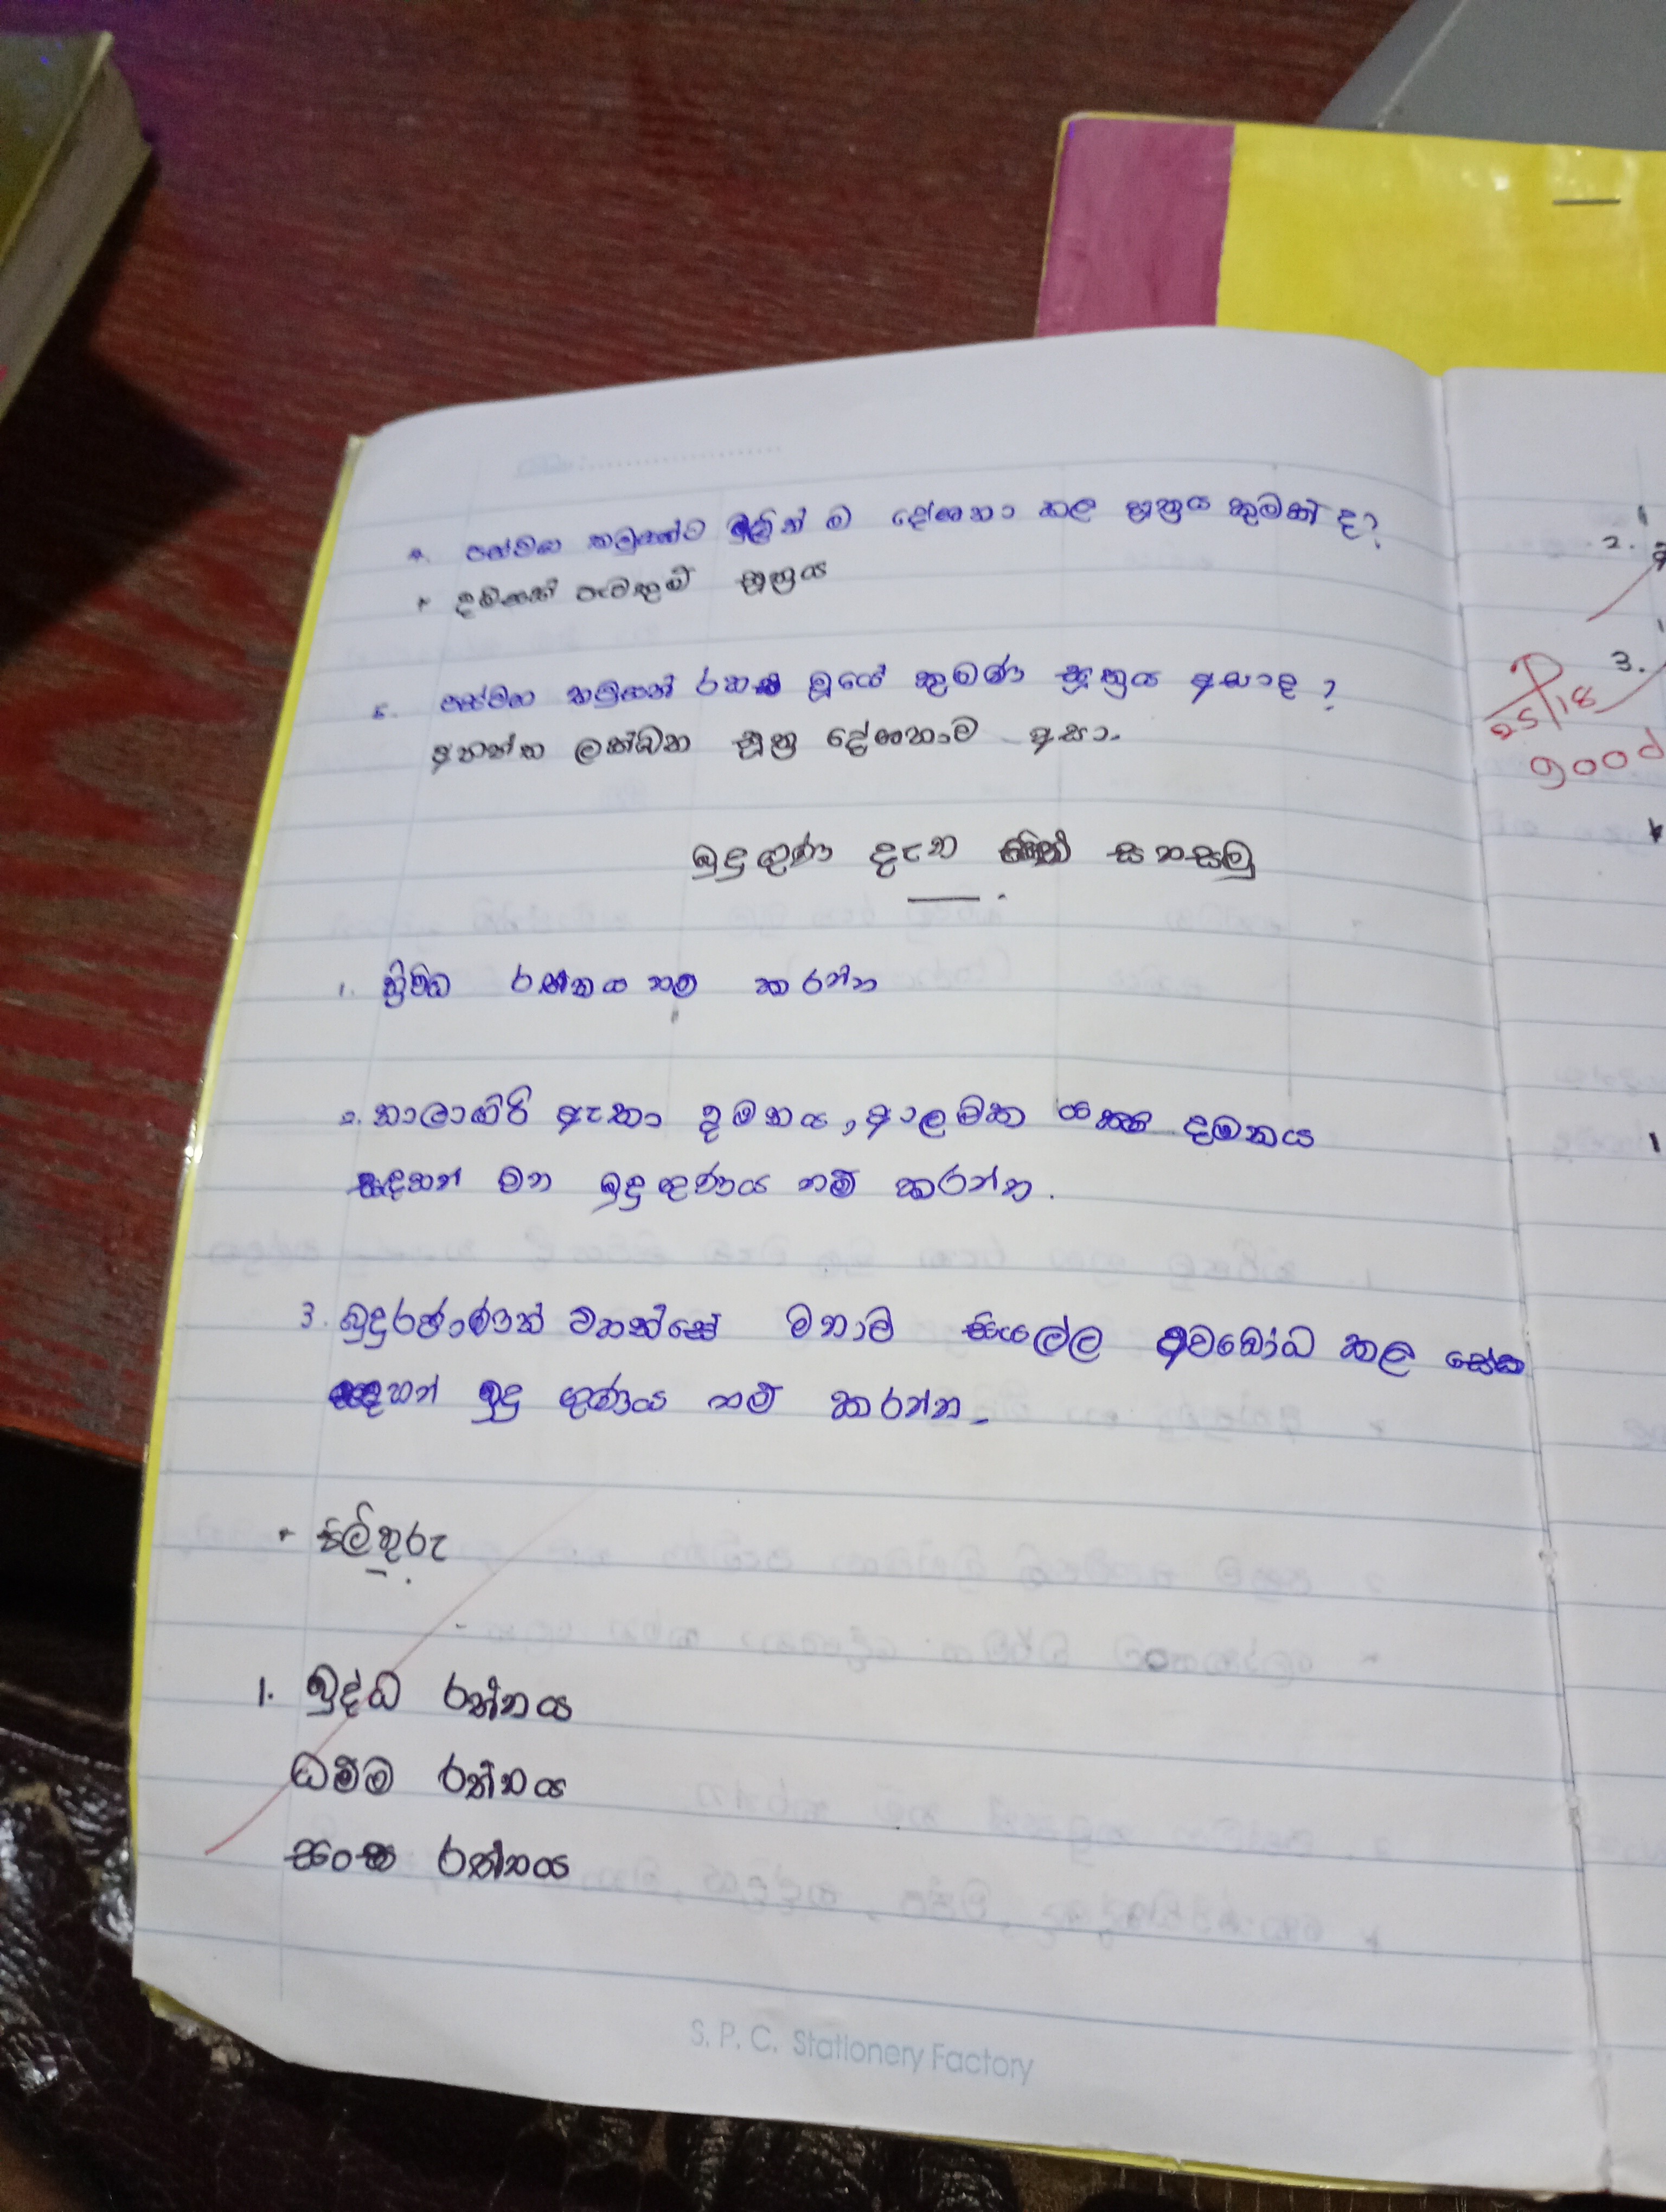 4. පස්වග තවුසන්ට මුලින් ම දේශනා කල සූත්‍රය කුමක් ද?
* දම්සක් පැවතුම් සූත්‍රය
5. පස්වග තවුසන් රහත් වූයේ කුමණ සූත්‍රය අසාද ?
අනත්ත ලක්ඛන සූත්‍ර දේශනාව අසා.
බුදුගුණ දැන සිත් සනසමු
1. ත්‍රිවිධ රත්නය නම් කරන්න
2. නාලාගිරි ඇතා දමනය, ආලවක යක්ෂ දමනය
සඳහන් වන බුදුගුණය නම් කරන්න.
3. බුදුරජාණන් වහන්සේ මනාව සියල්ල අවබෝධ කල සේක
සඳහන් බුදු ගුණය නම් කරන්න.
* පිලිතුරු
1. බුද්ධ රත්නය
ධම්ම රත්නය
සංඝ රත්නය
S. P. C. Stationery Factory
2.
3.
25/18
good